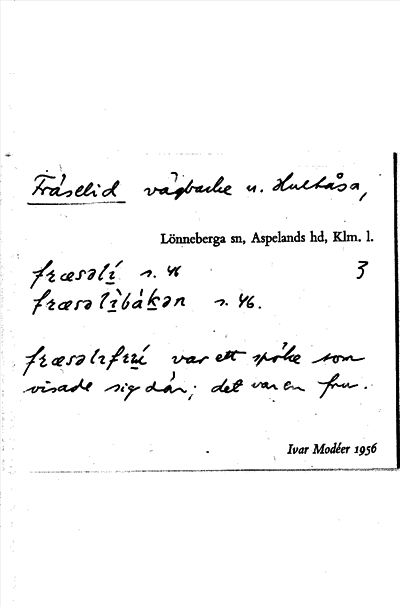 Fräselid vägbacke u. Hultåsa,
Lönneberga sn, Aspelands hd, Klm. l.
fræsəlí s. 46 3
fræsəlìbákən s. 46.
fræsəlifrú var ett spöke som
visade sig där; det var en fru.
Ivar Modéer 1956